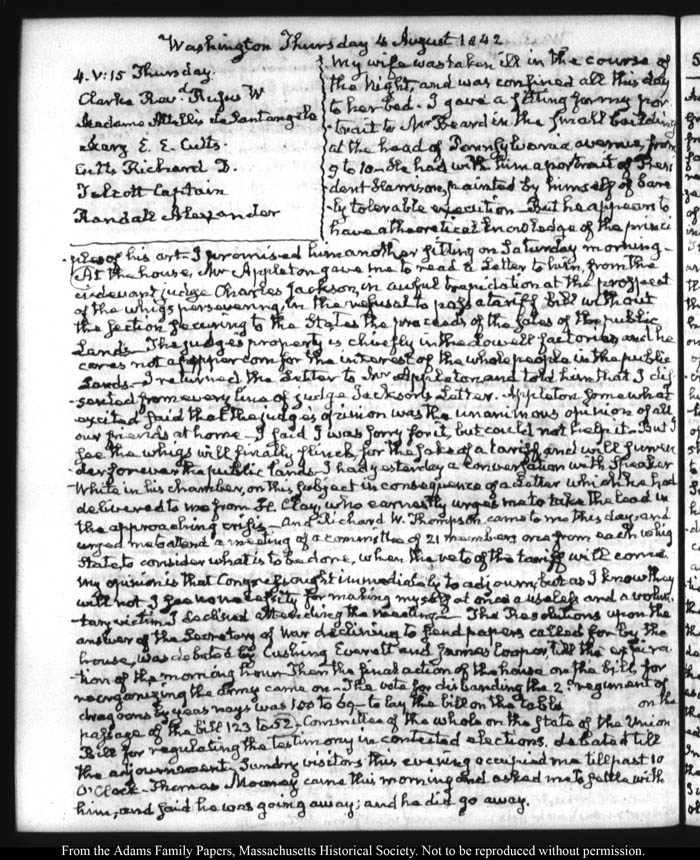 Washington Thursday 4 August 1842
4. V:15 Thursday.
Clarke Rev.d Rufus W
Madame Attellis de Santangelo
Mary E. E. Cutts.
Cutts Richard D.
Talcott Captain
Randall Alexander
My wife was taken ill in the course of
the night, and was confined all this day
to her bed. I gave a sitting for my por
trait to Mr Beard in the small building
at the head of Pennsylvania avenue, from
9 to 10. He had with him a portrait of Presi
dent Harrison, painted by himself of bare
ly tolerable execution. But he appears to
have a theoretical knowledge of the princi
ples of his art. I promised him another sitting on Saturday morning.
At the house, Mr Appleton gave me to read a Letter to him, from the
cidevant judge Charles Jackson, in awful trepidation at the prospect
of the whigs persevering in the refusal to pass a tariff bill without
the section securing to the States the proceeds of the sales of the public
Lands. The judges property is chiefly in the Lowell factories and he
cares not a peppercorn for the interest of the whole people in the public
Lands. I returned the Letter to Mr Appleton, and told him that I dis
sented from every line of judge Jackson's Letter. Appleton somewhat
excited said that the judge's opinion was the unanimous opinion of all
our friends at home. I said I was sorry for it, but could not help it. But I
see the whigs will finally flinch for the sake of a tariff, and will surren
der forever the public lands. I had yesterday a conversation with Speaker
White in his chamber, on this subject in consequence of a Letter which he had
delivered to me from H. Clay, who earnestly urges me to take the lead in
the approaching crisis. And Richard W. Thompson came to me this day, and
urged me to attend a meeting of a committee of 21 members one from each whig
State, to consider what is to be done, when the veto of the tariff will come.
My opinion is that Congress ought immediately to adjourn, but as I know they
will not I see no necessity for making myself at once a useless and a volun
tary victim I declined attending the meeting. The Resolutions upon the
answer of the Secretary of War declining to send papers called for by the
house, was debated by Cushing Everett and James Cooper till the expira
tion of the morning hour. Then the final action of the house on the bill for
reorganizing the army came on. The vote for disbanding the 2.d regiment of
dragoons by yeas nays was 100 to 60 to lay the bill on the table on the
passage of the bill 123 to 52. Committee of the whole on the state of the Union
Bill for regulating the testimony in contested elections, debated till
the adjournment. Sundry visitors this evening occupied me till past 10
O'Clock. Thomas Mooney came this morning and asked me to settle with
him, and said he was going away; and he did go away.
From the Adams Family Papers, Massachusetts Historical Society. Not to be reproduced without permission.